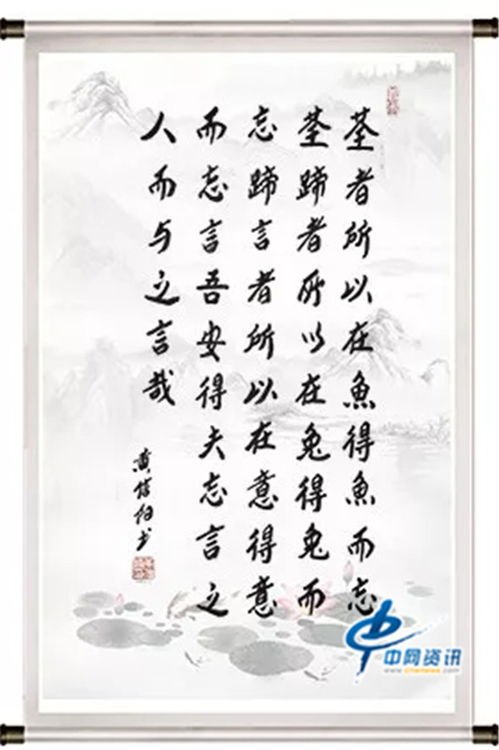 荃者所以在魚得魚而忘
荃蹄者所以在兔得兔而
忘蹄言者所以在意得意
而忘言吾安得夫忘言之
人而与之言哉
黄信伯书
中网资讯